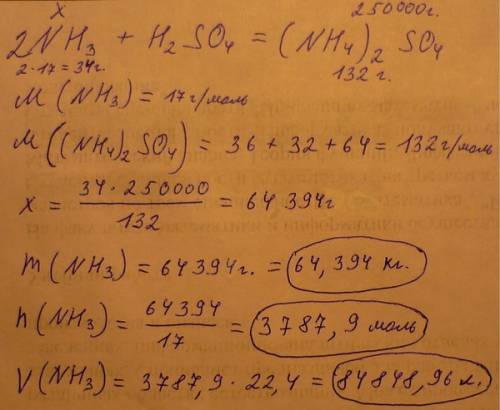 x 250000г.
2NH₃ + H₂SO₄ = (NH₄)₂ SO₄
2·17=34г. 132 г.
M(NH₃) = 17 г/моль
M((NH₄)₂SO₄) = 36 + 32 + 64 = 132 г/моль
x = 34 · 250000 / 132 = 64 394г
m(NH₃) = 64394г. = 64,394 кг.
n(NH₃) = 64394 / 17 = 3787,9 моль
V(NH₃) = 3787,9 · 22,4 = 84848,96 л.